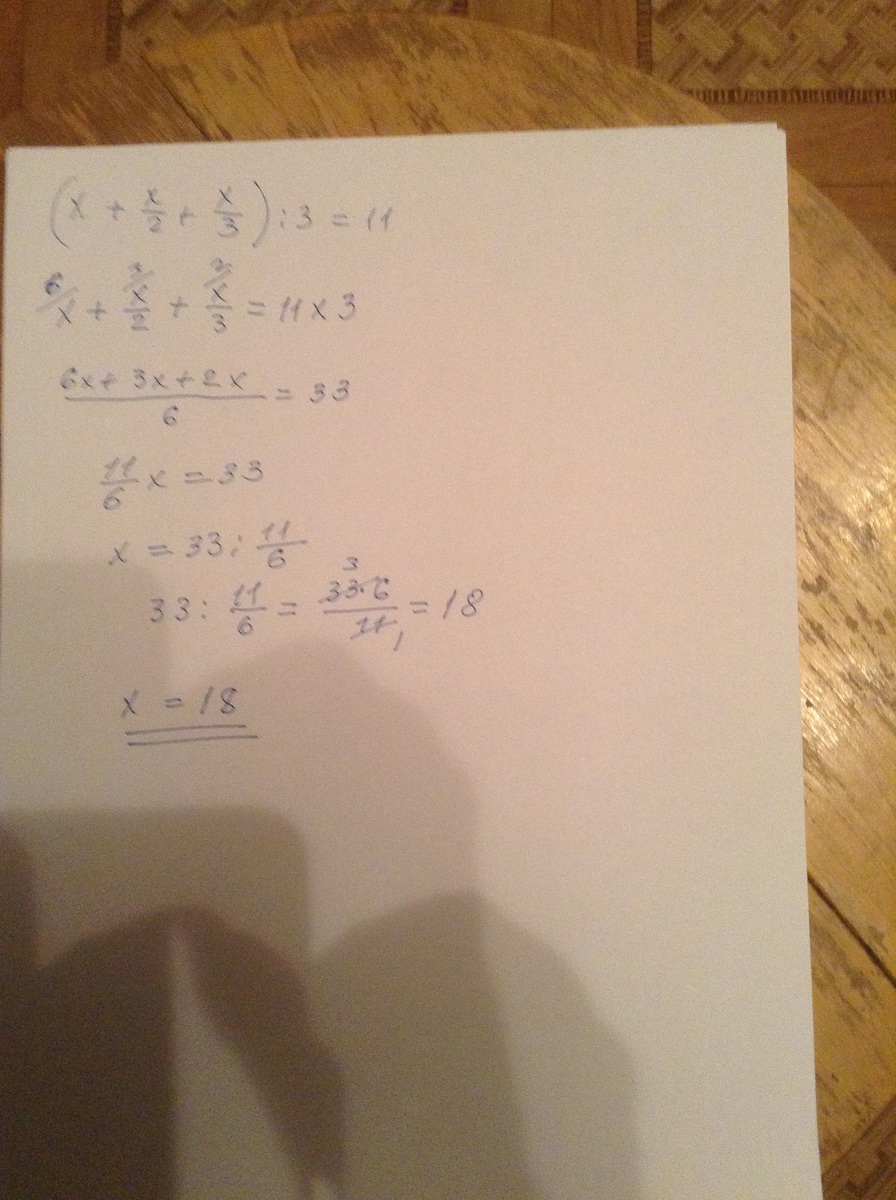 (x + x/2 + x/3) : 3 = 11
6/ x + 3/ x/2 + 2/ x/3 = 11 x 3
6x + 3x + 2x / 6 = 33
11/6 x = 33
x = 33 : 11/6
33 : 11/6 = 3 33·6 / 11 1 = 18
x = 18